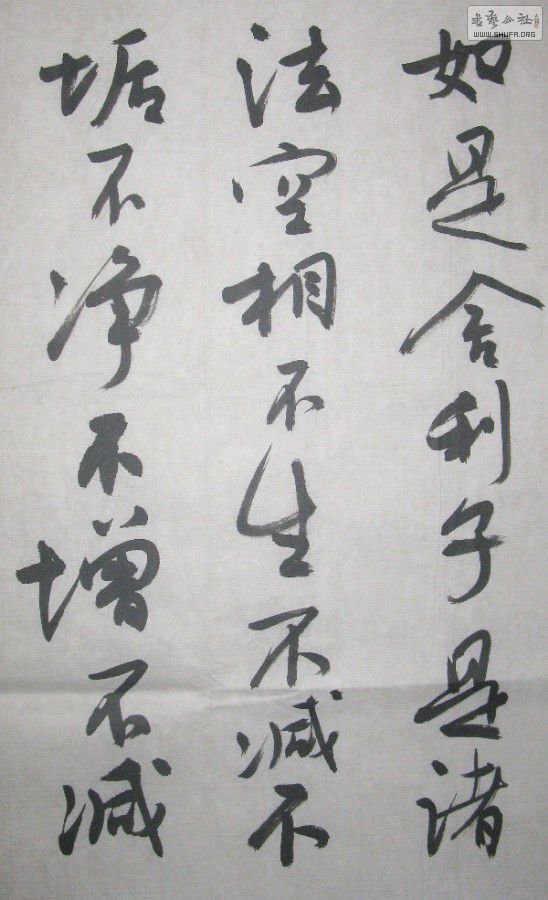 如是舍利子是诸
法空相不生不减不
垢不净不增不减
書藝公社
WWW.SHUFA.ORG